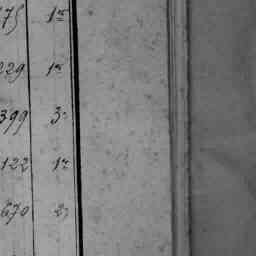 75 1re
229 1re
399 3e
122 1re
670 2e